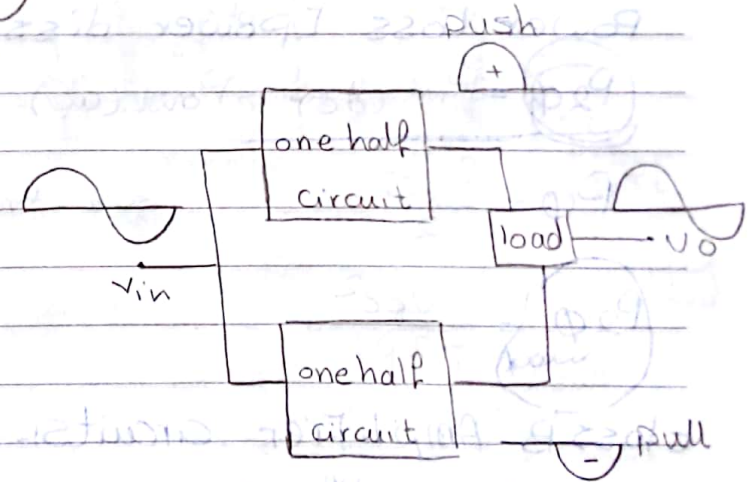 push
+
one half
circuit
load
vo
vin
one half
circuit
pull
-